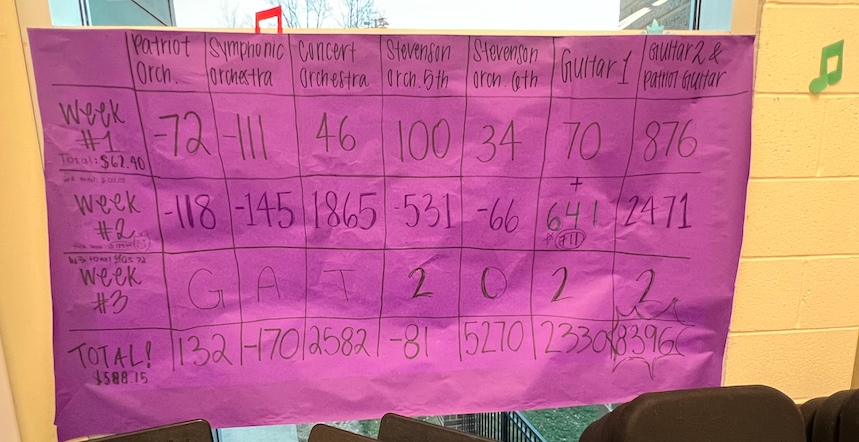 Patriot Orch. Symphonic Orchestra Concert Orchestra Stevenson Orch. 5th Stevenson Orch. 6th Guitar 1 Guitar 2 & Patriot Guitar
Week #1 -72 -111 46 100 34 70 876
Total: $62.90
Week #2 -118 -145 1865 -531 -66 + 641 2471
711
Week #3 G A T 2 0 2 2
TOTAL! 132 -170 2582 -81 5270 2330 8396
$588.15